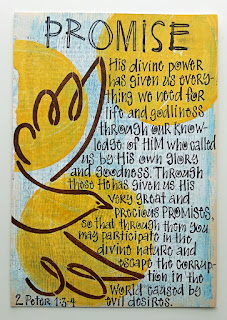 PROMISE
His divine power
has given us every-
thing we need for
life and godliness
through our know-
ledge of HiM who called
us by His own glory
and goodness. Through
these He has given us His
very great and
precious PROMISES,
so that through them you
may participate in the
divine nature and
escape the corrup-
tion in the
world caused by
evil desires.
2 Peter 1:3-4